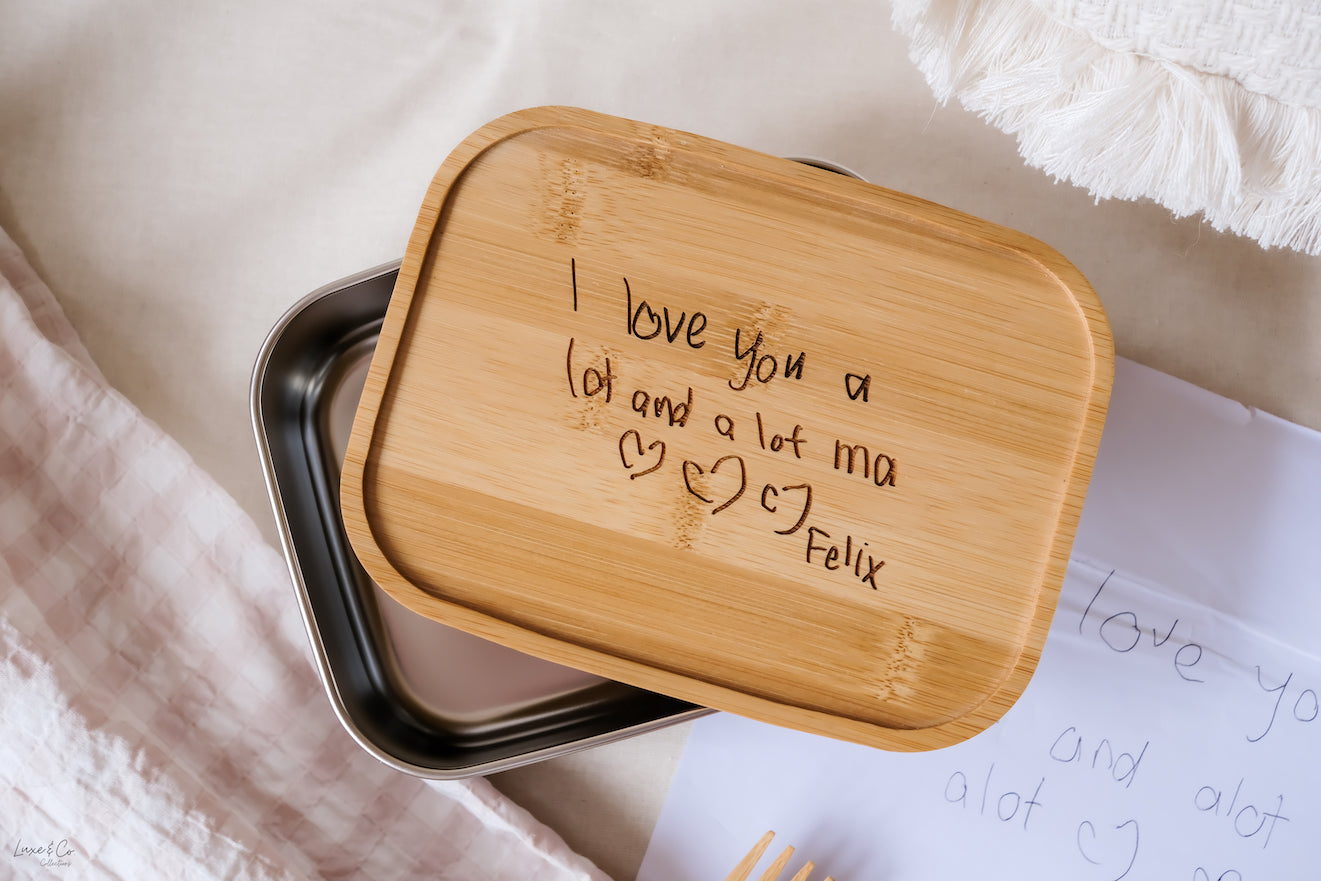 I love you a
lot and a lot ma
Felix
love yo
and alot
alot
Luxe & Co.
Collections